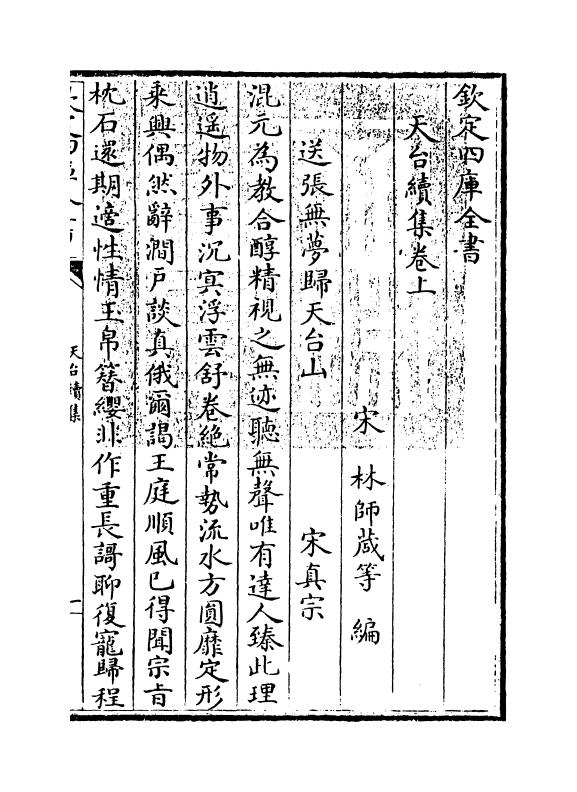 欽定四庫全書
天台續集卷上
宋 林師蒧等 編
送張無夢歸天台山 宋真宗
混元為教合醇精視之無迹聽無聲唯有達人臻此理
逍遥物外事沉冥浮雲舒卷絶常勢流水方圓靡定形
乘興偶然辭澗戸談真俄爾謁王庭順風已得聞宗旨
枕石還期適性情玉帛簪纓非作重長謌聊復寵歸程
天台續集
一